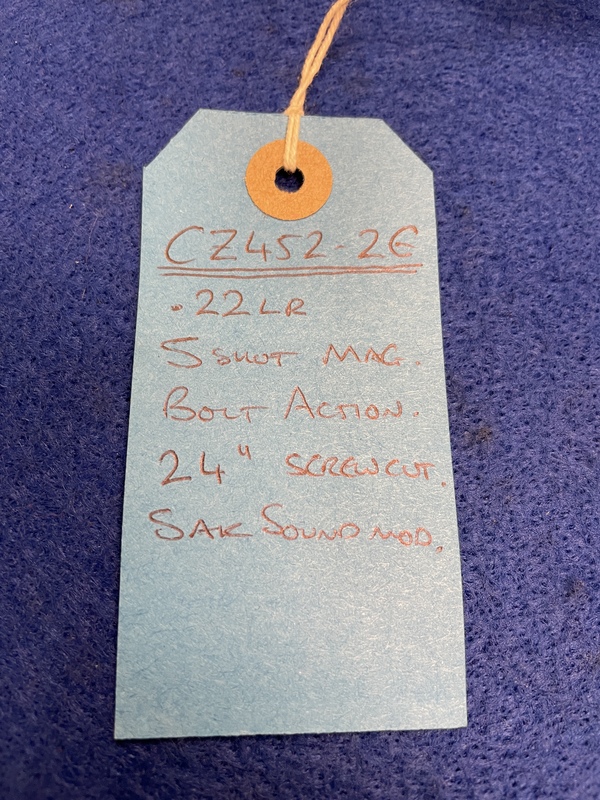 CZ452-2E
.22LR
5 SHOT MAG.
BOLT ACTION.
24" SCREWCUT.
SAK SOUND MOD.